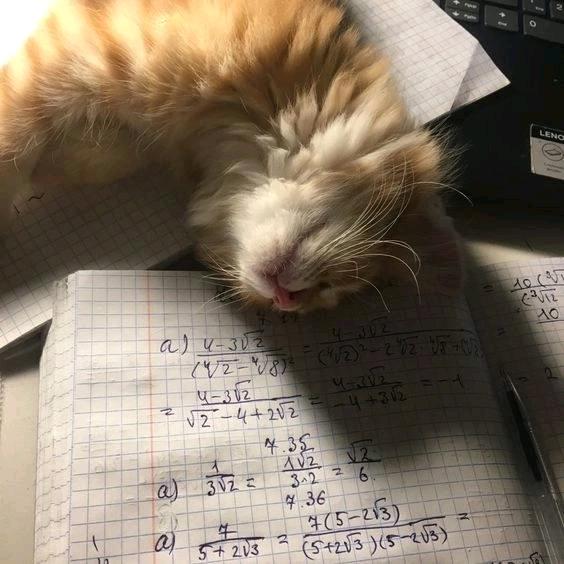 LENO
a) (4-3√2)/(⁴√2-⁴√8)² = (4-3√2)/((⁴√2)²-2⁴√2·⁴√8+(
= (4-3√2)/(√2-4+2√2) = (4-3√2)/(-4+3√2) = -1
7.35
a) 1/(3√2) = (1√2)/(3·2) = √2/6
7.36
a) 7/(5+2√3) = (7(5-2√3))/((5+2√3)(5-2√3)) =
= 10(
10
= 2